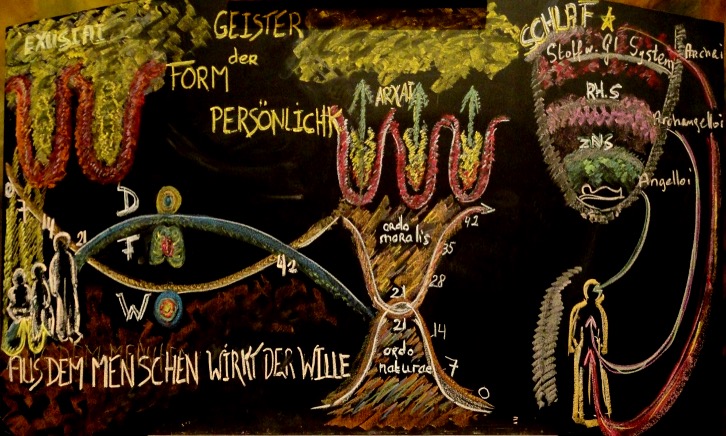 EXUSIAI
GEISTER
der
FORM
PERSÖNLICHK
ARXAI
SCHLAF
Stoffw. Gl System
Archai
RH.S
Archangelloi
ZNS
Angelloi
0
7
14
21
D
F
W
42
ordo
moralis
42
35
28
21
21
14
ordo
naturae
7
0
AUS DEM MENSCHEN WIRKT DER WILLE